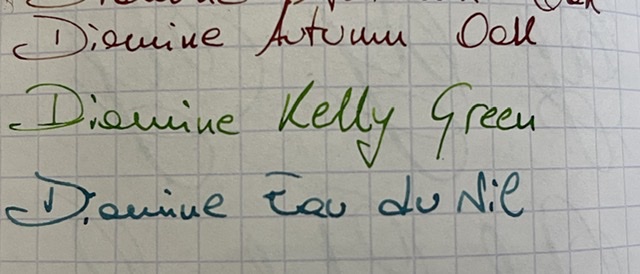 Diamine Autumn Oak
Diamine Kelly Green
Diamine Eau du Nil